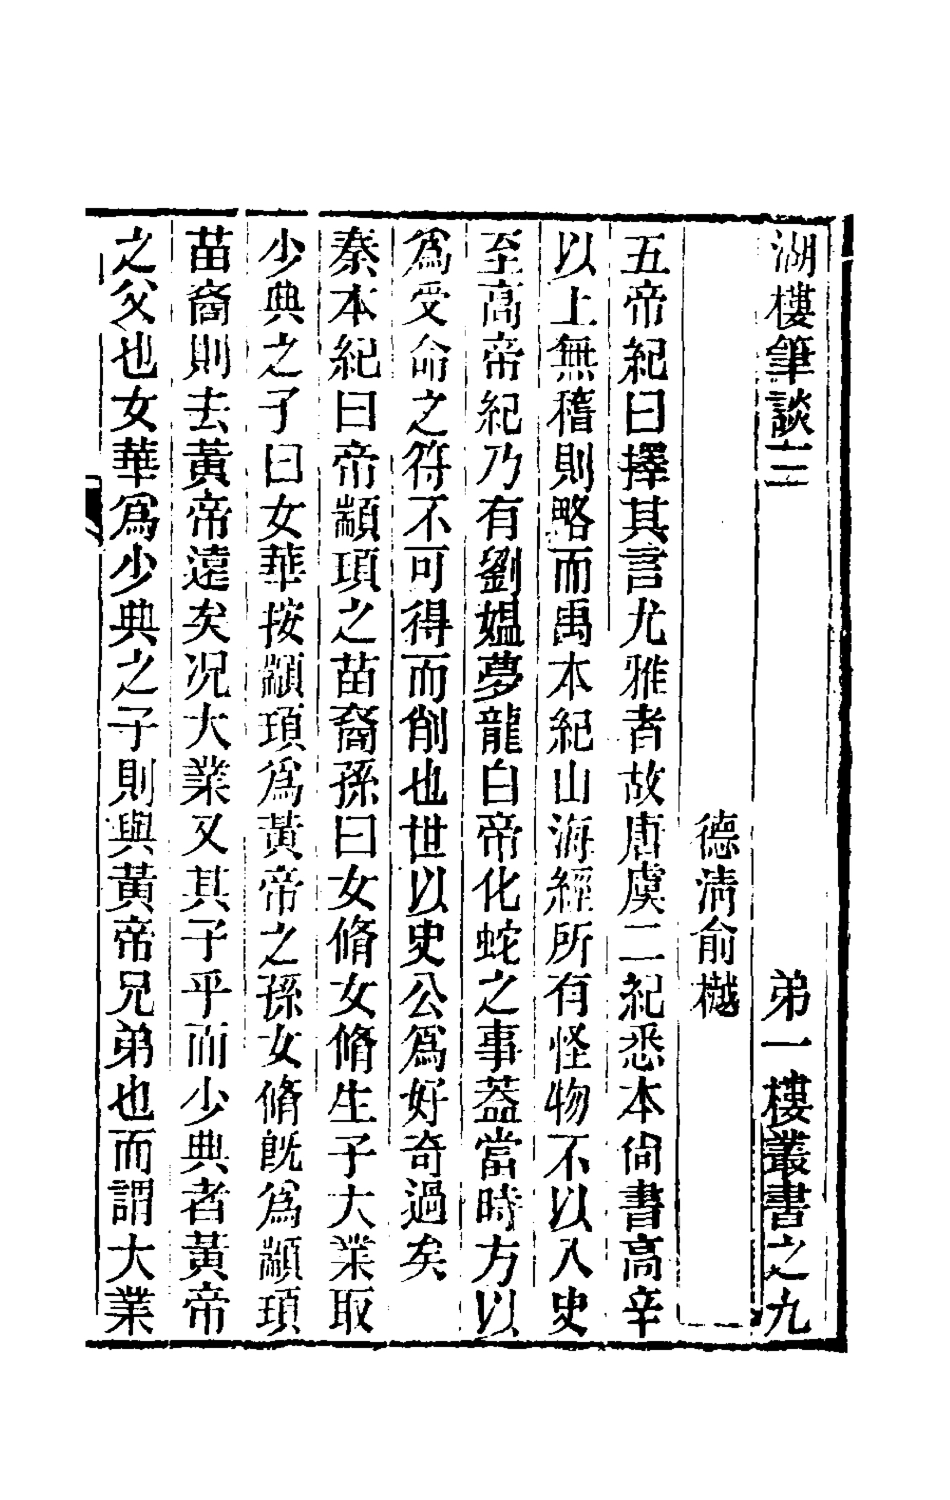 湖樓筆談三　弟一樓叢書之九
德清俞樾
五帝紀曰擇其言尤雅者故唐虞二紀悉本尙書高辛
以上無稽則略而禹本紀山海經所有怪物不以入史
至高帝紀乃有劉媼夢龍白帝化蛇之事葢當時方以
爲受命之符不可得而削也世以史公爲好奇過矣
秦本紀曰帝顓頊之苗裔孫曰女脩女脩生子大業取
少典之子曰女華按顓頊爲黃帝之孫女脩旣爲顓頊
苗裔則去黃帝遠矣况大業又其子乎而少典者黃帝
之父也女華爲少典之子則與黃帝兄弟也而謂大業